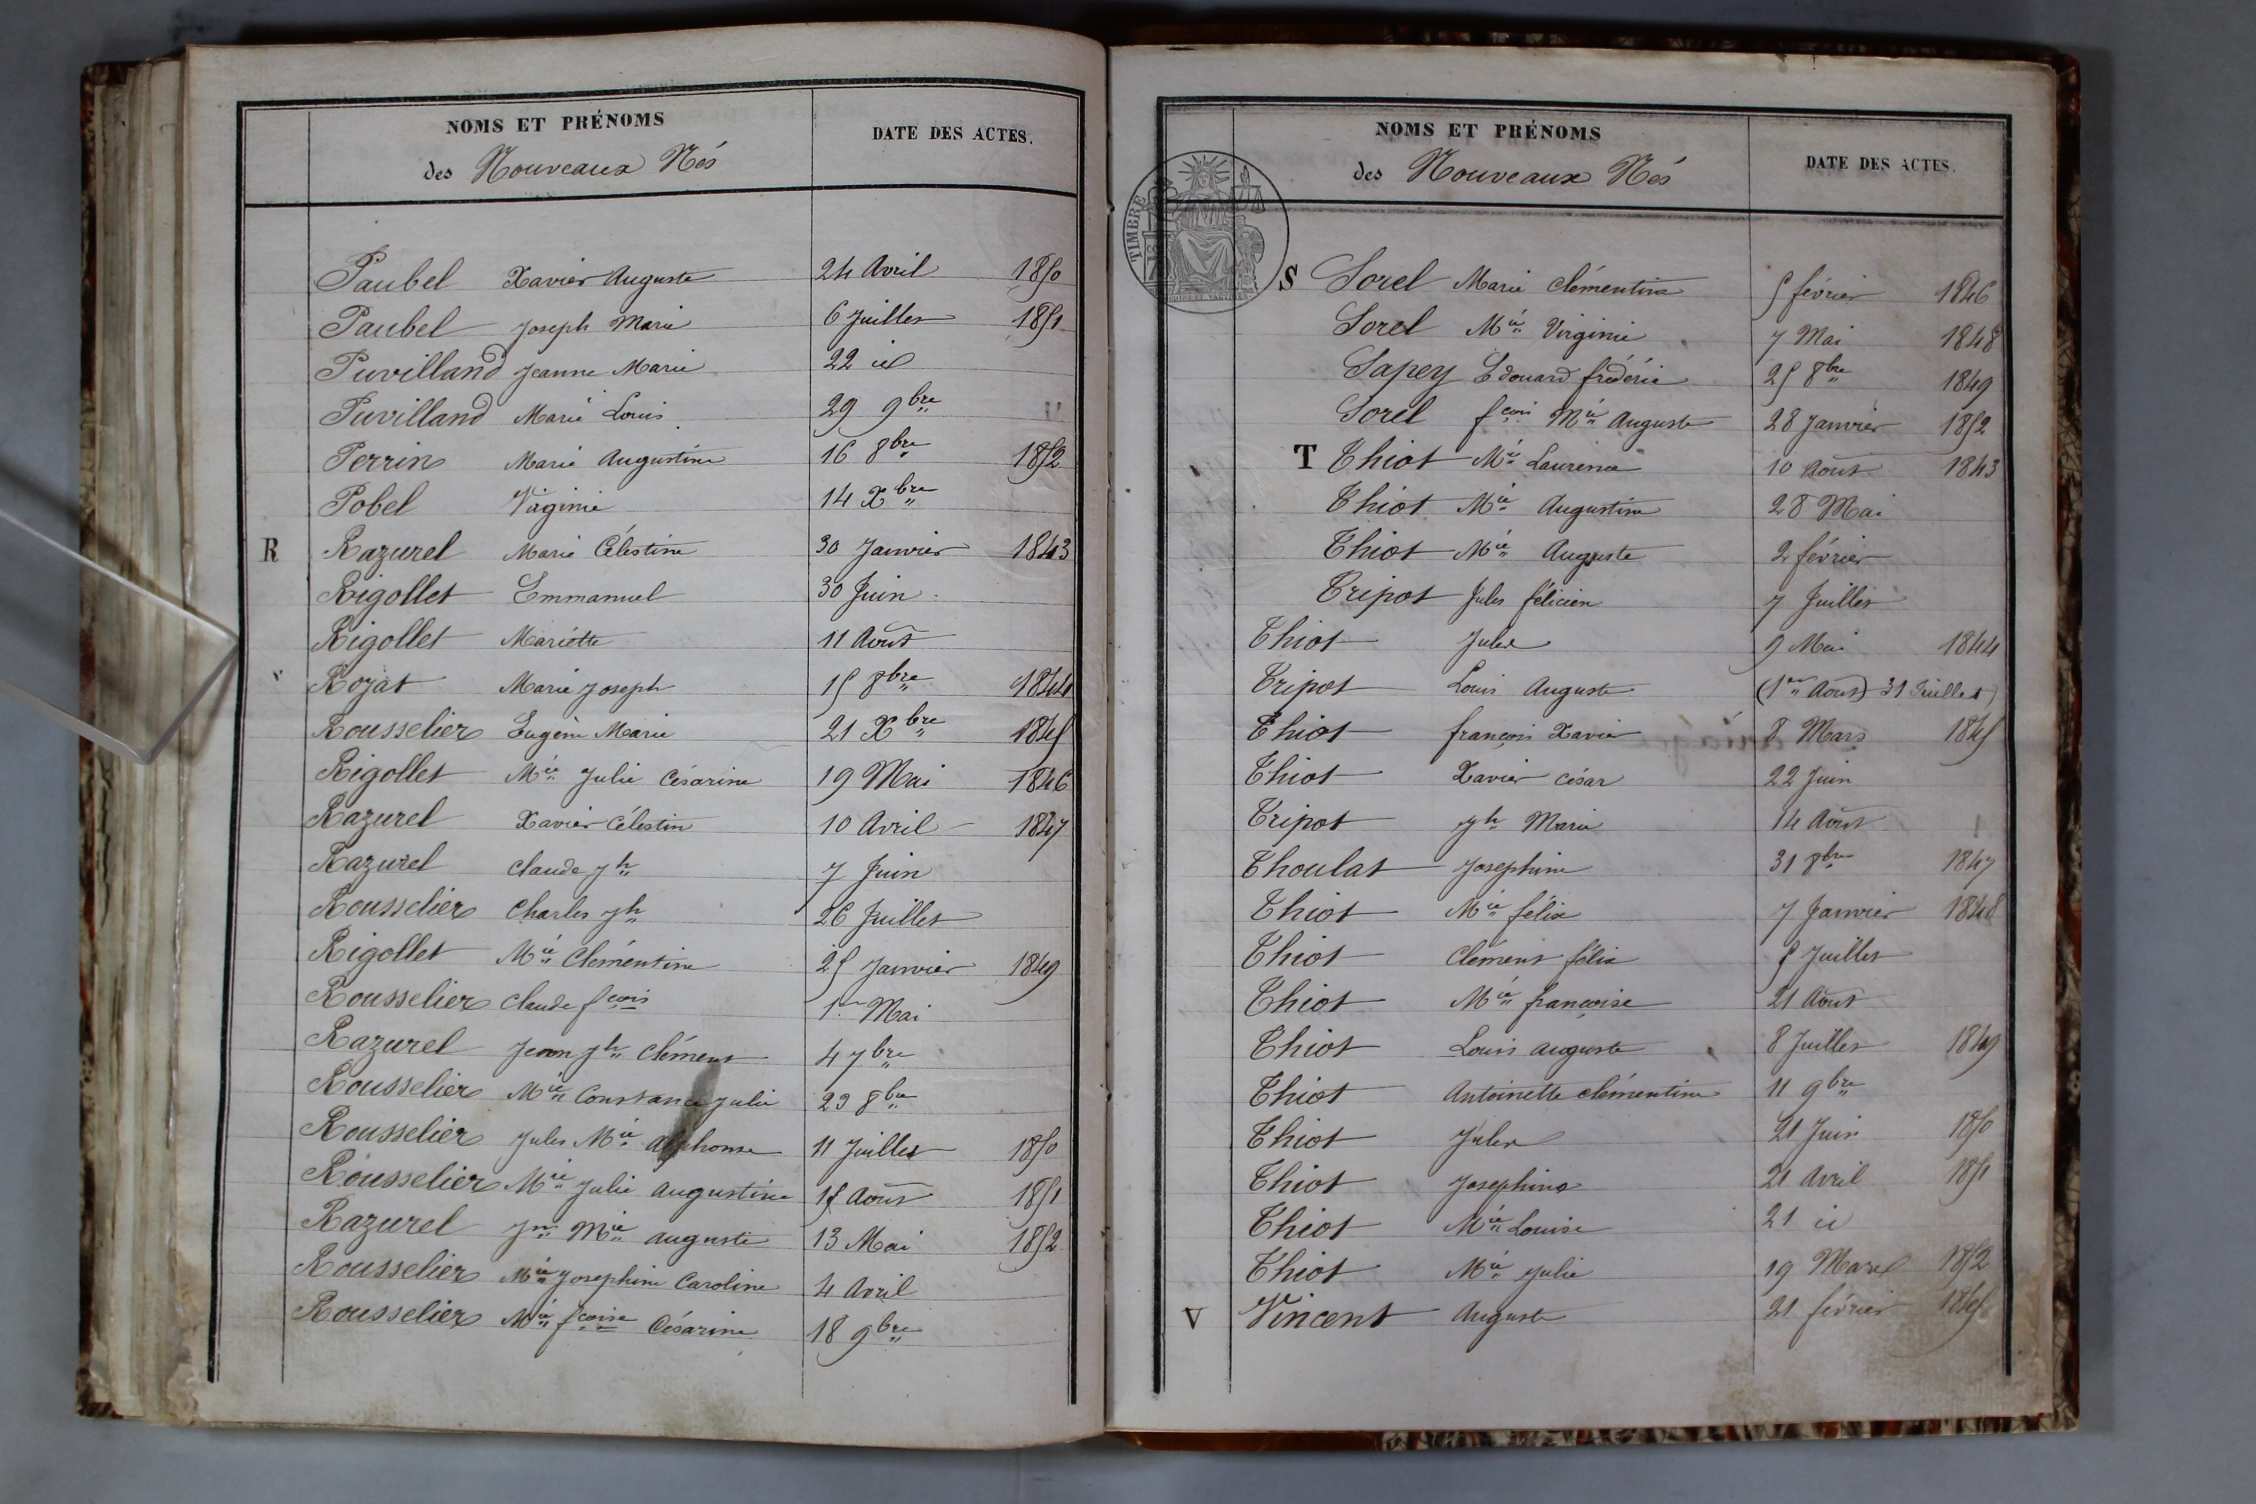 NOMS ET PRÉNOMS
des Nouveaux Nés
DATE DES ACTES.
Paubel Xavier Auguste 24 Avril 1850
Paubel Joseph Marie 6 Juillet 1851
Puvilland Jeanne Marie 22 id
Puvilland Marie Louis 29 9bre "
Perrin Marie Augustine 16 8bre 1852
Pobel Virginie 14 Xbre
R Razurel Marie Célestine 30 Janvier 1843
Rigollet Emmanuel 30 Juin
Rigollet Mariette 11 Août
Rojat Marie Joseph 15 8bre 1844
Rousselier Eugène Marie 21 Xbre 1845
Rigollet Mie Julie Césarine 19 Mai 1846
Razurel Xavier Célestin 10 Avril 1847
Razurel Claude Jh 7 Juin
Rousselier Charles Jh 26 Juillet
Rigollet Mie Clémentine 25 Janvier 1849
Rousselier Claude fçois 1er Mai
Razurel Jean Jh Clément 4 7bre
Rousselier Mie Constance Julie 23 8bre
Rousselier Jules Mie Alphonse 11 Juillet 1850
Rousselier Mie Julie Augustine 15 Août 1851
Razurel Jn Mie Auguste 13 Mai 1852
Rousselier Mie Josephine Caroline 4 Avril
Rousselier Mie fçoise Césarine 18 9bre
NOMS ET PRÉNOMS
des Nouveaux Nés
DATE DES ACTES.
TIMBRE
S Sorel Marie Clémentine 5 février 1846
Sorel Mie Virginie 7 Mai 1848
Sapey Edouard frédéric 25 8bre 1849
Sorel fçois Mie Auguste 28 Janvier 1852
T Thiot Mie Laurence 10 Août 1843
Thiot Mie Augustine 28 Mai
Thiot Mie Auguste 2 février
Tripot Jules félicien 7 Juillet
Thiot Jules 9 Mai 1844
Tripot Louis Auguste (1er Août) 31 Juillet)
Thiot françois Xavier 8 Mars 1845
Thiot Xavier César 22 Juin
Tripot Jh Marie 14 Août
Thoulat Josephine 31 8bre 1847
Thiot Mie félix 7 Janvier 1848
Thiot Clément félix 5 Juillet
Thiot Mie françoise 21 Août
Thiot Louis Auguste 8 Juillet 1849
Thiot Antoinette Clémentine 11 9bre
Thiot Jules 21 Juin 1850
Thiot Josephine 21 Avril 1851
Thiot Mie Louise 21 id
Thiot Mie Julie 19 Mars 1852
V Vincent Auguste 21 février 1845